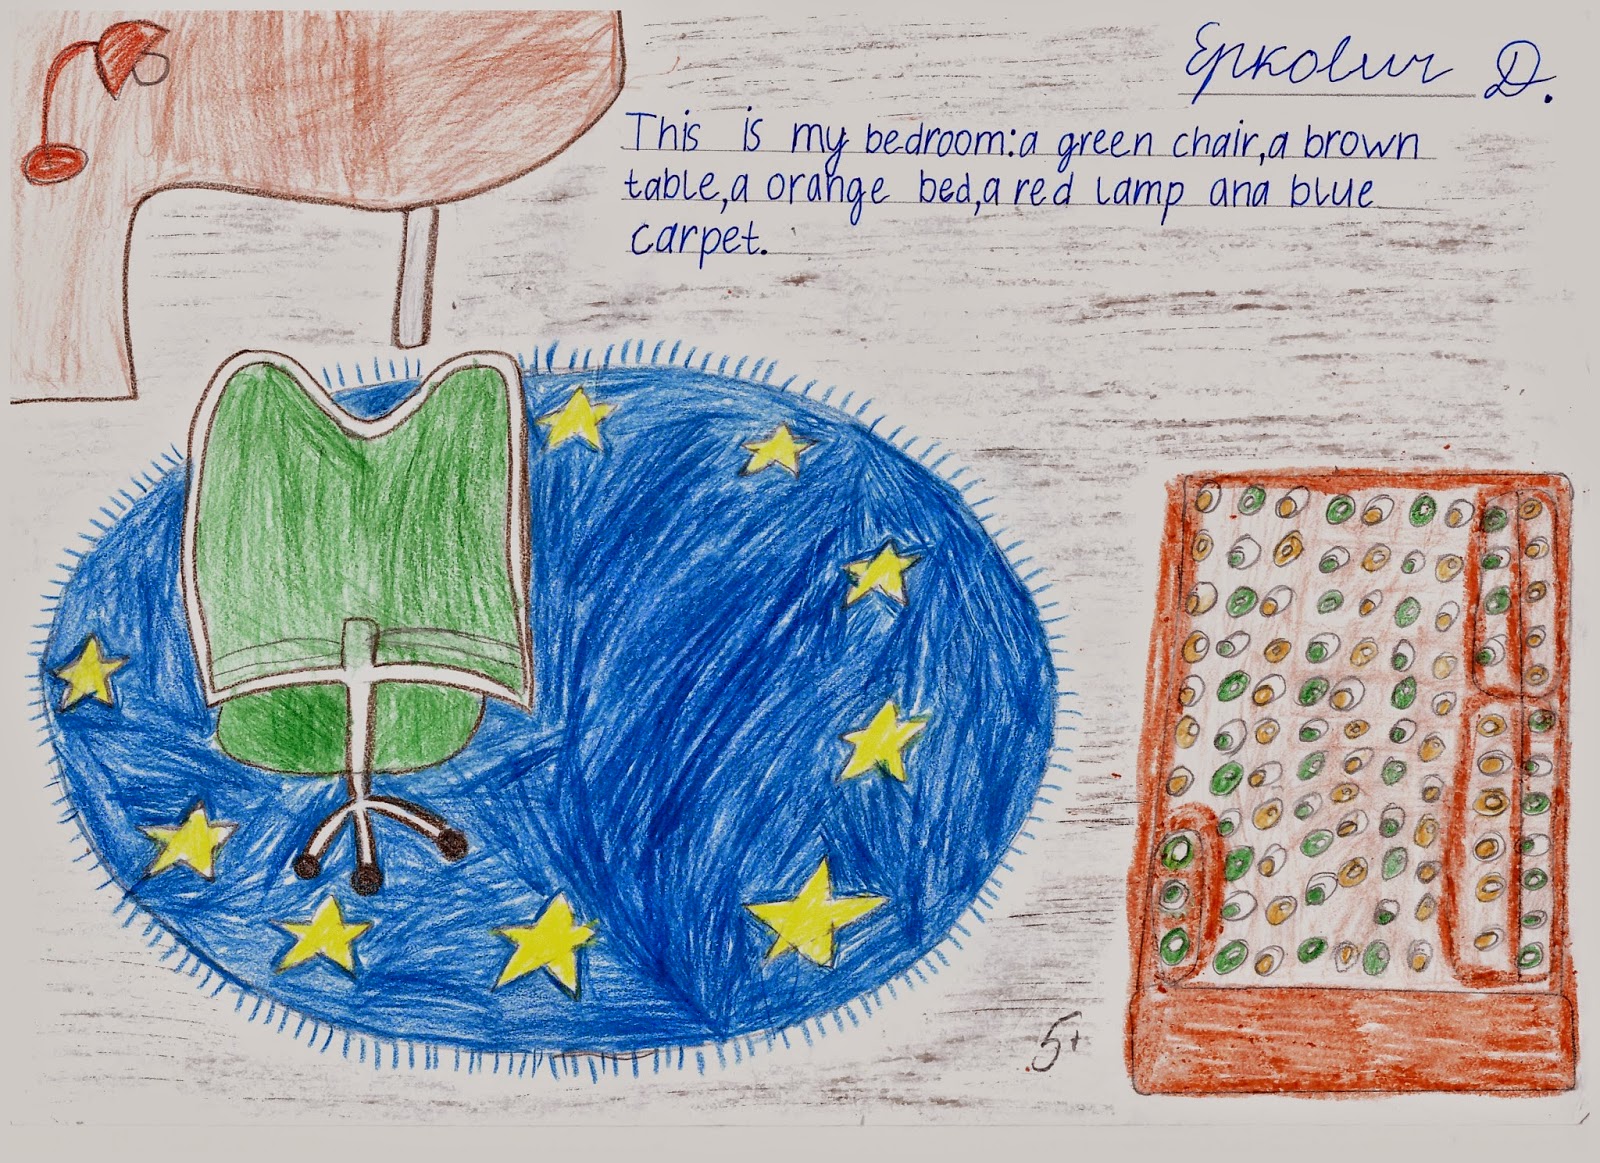 Еркович Д.
This is my bedroom:a green chair,a brown
table,a orange bed,a red lamp ana blue
carpet.
5+